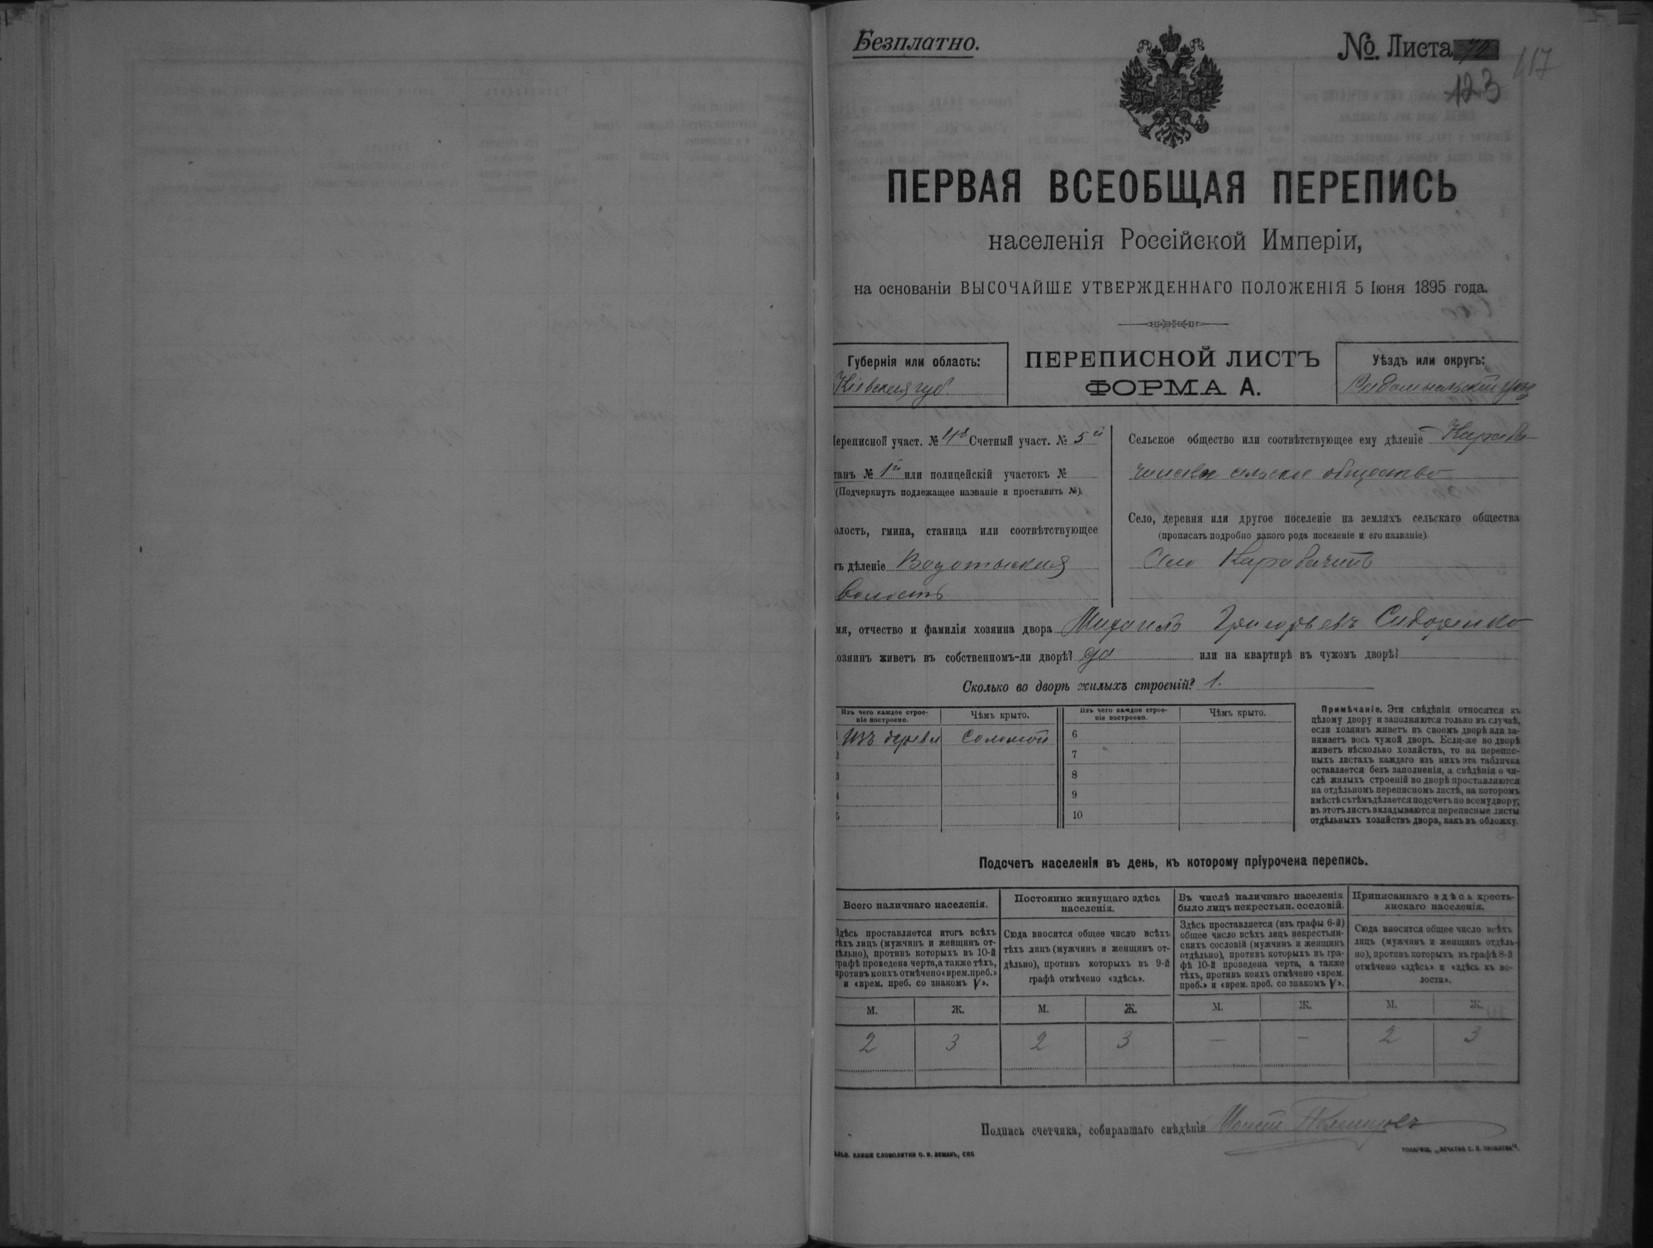 Безплатно.
№. Листа
123
417
ПЕРВАЯ ВСЕОБЩАЯ ПЕРЕПИСЬ
населенія Россійской Имперіи,
на основаніи ВЫСОЧАЙШЕ УТВЕРЖДЕННАГО ПОЛОЖЕНІЯ 5 Іюня 1895 года.
Губернія или область:
Кіевская губ
ПЕРЕПИСНОЙ ЛИСТЪ
ФОРМА А.
Уѣздъ или округъ:
Радомысльскій уѣзд
Переписной участ. № 4й Счетный участ. № 5й
танъ № 1й или полицейскій участокъ №
(Подчеркнуть подлежащее названіе и проставить №).
олость, гмина, станица или соотвѣтствующее
ъ дѣленіе Водотыская
Волость
Сельское общество или соотвѣтствующее ему дѣленіе Карави-
чинское сельское общество
Село, деревня или другое поселеніе на земляхъ сельскаго общества
(прописать подробно какого рода поселеніе и его названіе).
Село Каравичинъ
мя, отчество и фамилія хозяина двора Михаилъ Григорьевъ Сидоренко
озяинъ живетъ въ собственномъ-ли дворѣ? да или на квартирѣ въ чужомъ дворѣ?
Сколько во дворѣ жилыхъ строеній? 1.
Изъ чего каждое строе-
ніе построено.
Чѣмъ крыто.
Изъ чего каждое строе-
ніе построено.
Чѣмъ крыто.
изъ дерева соломой 6
2 7
3 8
4 9
5 10
Примѣчаніе. Эти свѣдѣнія относятся къ
цѣлому двору и заполняются только въ случаѣ,
если хозяинъ живетъ въ своемъ дворѣ или за-
нимаетъ весь чужой дворъ. Если-же во дворѣ
живетъ нѣсколько хозяйствъ, то на перепис-
ныхъ листахъ каждаго изъ нихъ эта табличка
оставляется безъ заполненія, а свѣдѣнія о чи-
слѣ жилыхъ строеній во дворѣ проставляются
на отдѣльномъ переписномъ листѣ, на которомъ
вмѣстѣ съ тѣмъ дѣлается подсчетъ по всему двору;
въ этотъ листъ вкладываются переписные листы
отдѣльныхъ хозяйствъ двора, какъ въ обложку.
Подсчетъ населенія въ день, къ которому пріурочена перепись.
Всего наличнаго населенія.
Здѣсь проставляется итогъ всѣхъ
тѣхъ лицъ (мужчинъ и женщинъ от-
дѣльно), противъ которыхъ въ 10-й
графѣ проведена черта, а также тѣхъ,
противъ коихъ отмѣчено «врем. преб.»
и «врем. преб. со знакомъ V».
Постоянно живущаго здѣсь
населенія.
Сюда вносится общее число всѣхъ
тѣхъ лицъ (мужчинъ и женщинъ от-
дѣльно), противъ которыхъ въ 9-й
графѣ отмѣчено «здѣсь».
Въ числѣ наличнаго населенія
было лицъ некрестьян. сословій.
Здѣсь проставляется (изъ графы 6-й)
общее число всѣхъ лицъ некрестьян-
скихъ сословій (мужчинъ и женщинъ
отдѣльно), противъ которыхъ въ гра-
фѣ 10-й проведена черта, а также
тѣхъ, противъ коихъ отмѣчено «врем.
преб.» и «врем. преб. со знакомъ V».
Приписаннаго здѣсь кресть-
янскаго населенія.
Сюда вносится общее число всѣхъ
лицъ (мужчинъ и женщинъ отдѣль-
но), противъ которыхъ въ графѣ 8-й
отмѣчено «здѣсь» и «здѣсь къ во-
лости».
М. Ж. М. Ж. М. Ж. М. Ж.
2 3 2 3 — — 2 3
Подпись счетчика, собиравшаго свѣдѣнія